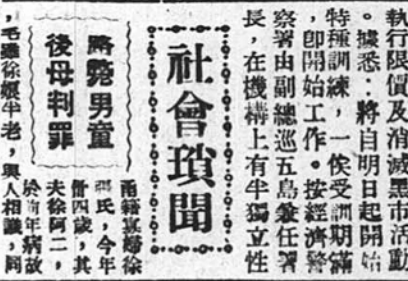 執行限價及消滅黑市活動
。據悉：將自明日起開始
特種訓練，一俟受訓期滿
，卽開始工作。按經濟警
察署由副總巡五島兼任署
長，在機構上有半獨立性
社會瑣聞
斃男童
後母判罪
甬籍寡婦徐
氏，今年
卅四歲，其
夫徐阿二，
於前年病故
，毛雖徐娘半老，與人相識，同